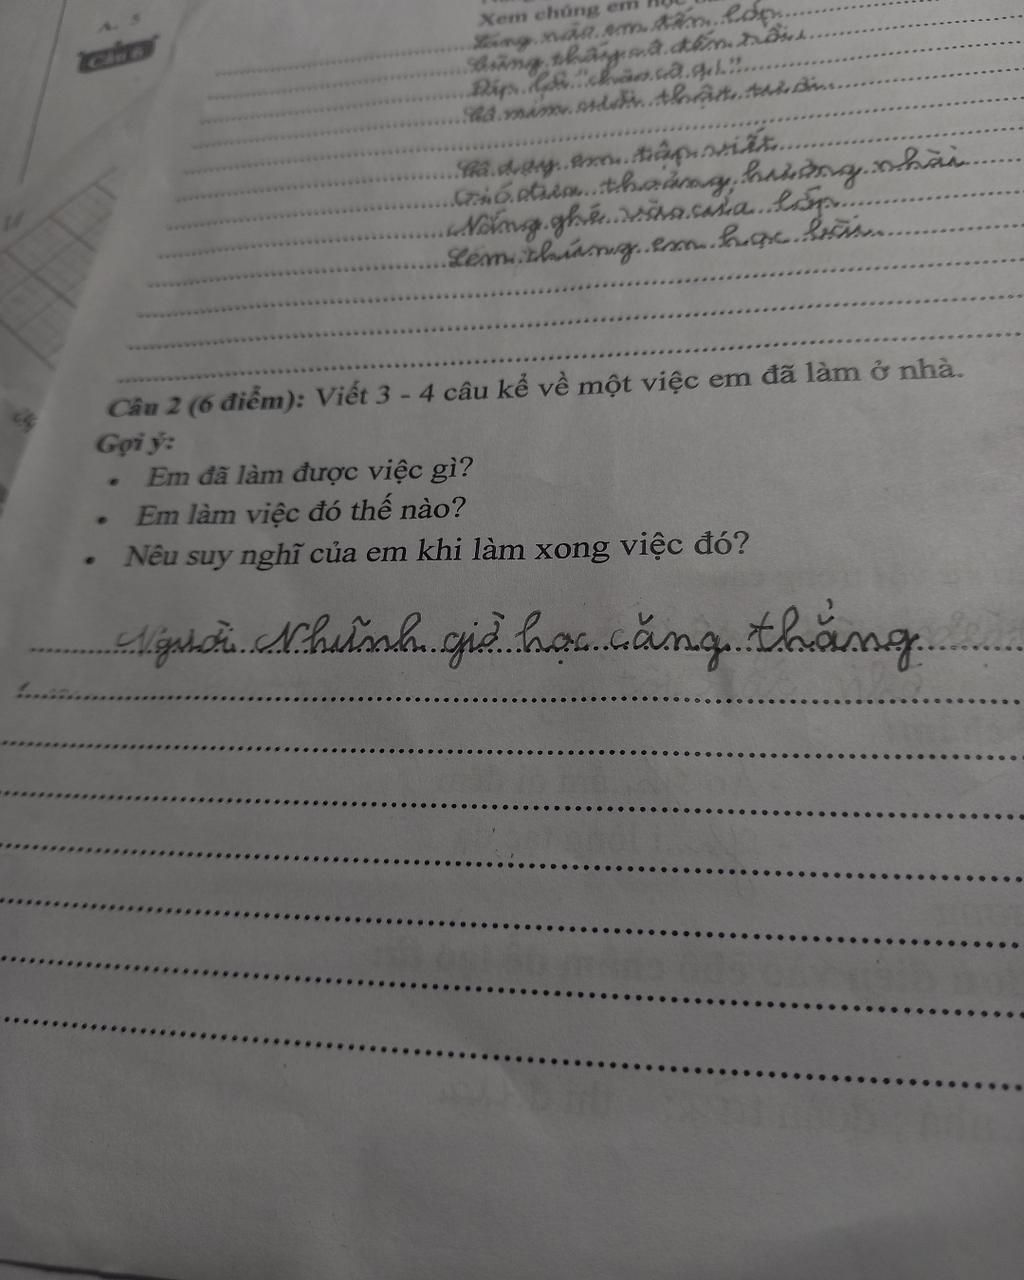 A. 5
Câu 6
Xem chúng em học
Sáng nào em đến lớp
Cũng thấy cô đến rồi
Đáp lời "chào cô ạ!"
Cô mỉm cười thật tươi.
Cô dạy em tập viết
Gió đưa thoảng hương nhài
Nắng ghé vào cửa lớp
Xem chúng em học bài.
Câu 2 (6 điểm): Viết 3 - 4 câu kể về một việc em đã làm ở nhà.
Gợi ý:
• Em đã làm được việc gì?
• Em làm việc đó thế nào?
• Nêu suy nghĩ của em khi làm xong việc đó?
Người Nhữnh giờ học căng thẳng